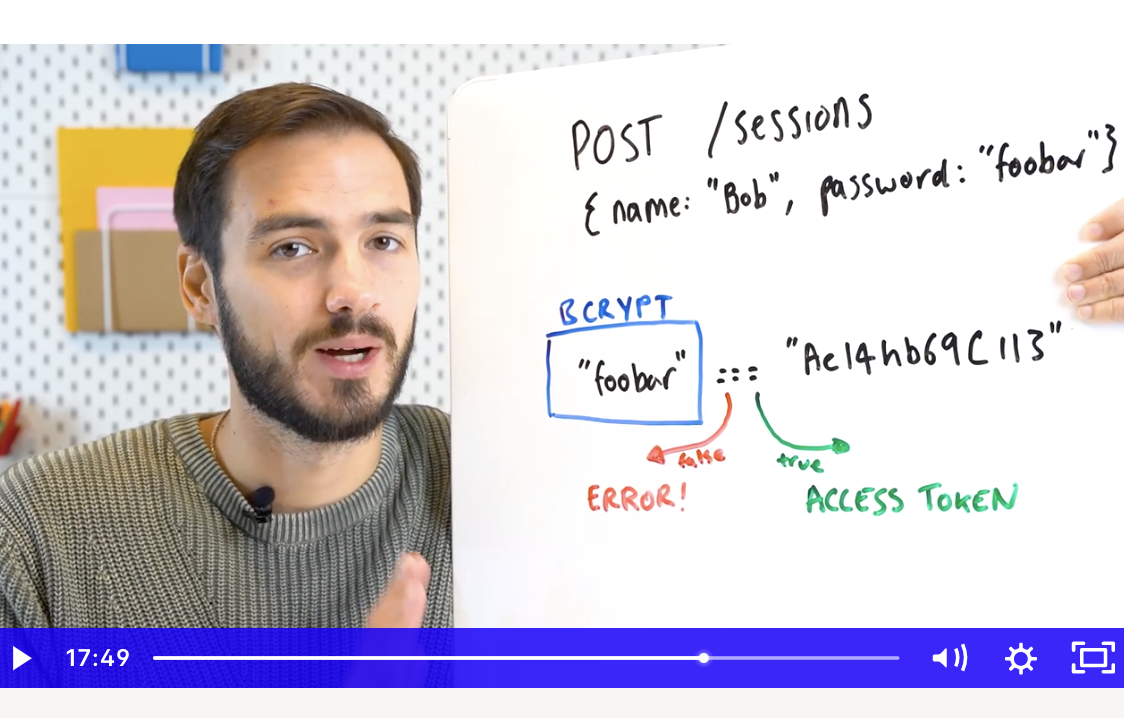 POST /sessions
{ name: "Bob", password: "foobar"}
BCRYPT
"foobar" === "Ae14hb69C113"
false true
ERROR! ACCESS TOKEN
17:49